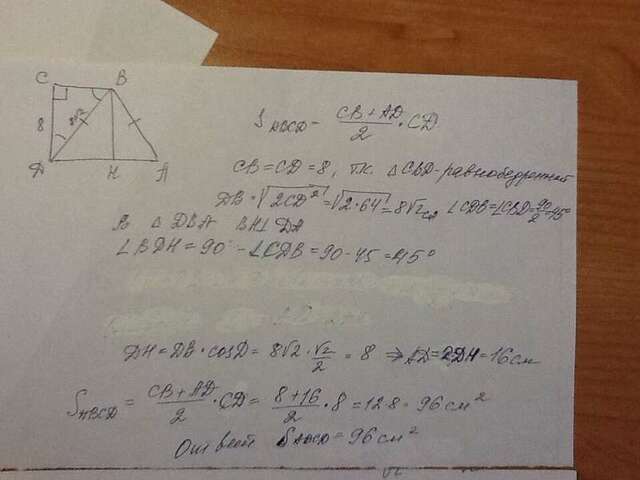 C B
8 8√2
D H A
S ABCD = CB+AD/2 · CD
CB=CD=8, т.к. △CBD-равнобедренный
DB=√2CD² = √2·64 = 8√2 см ∠CDB=∠CBD=90/2=45°
В △DBA BH⊥DA
∠BDH=90°-∠CDB=90-45=45°
DH=DB·cosD=8√2·√2/2=8 ⇒ AD=2DH=16см
S ABCD = CB+AD/2 · CD = 8+16/2 · 8 = 12·8= 96см²
Ответ S ABCD = 96см²